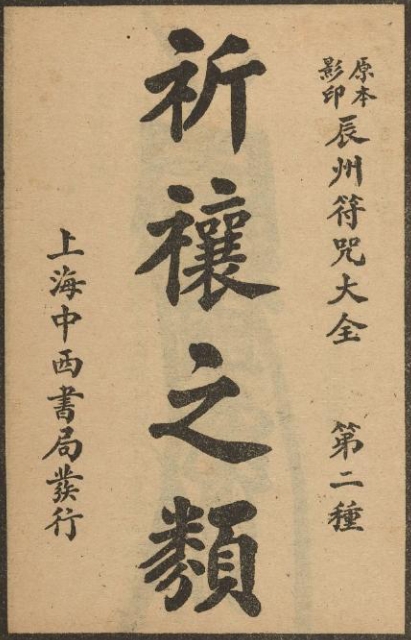 原本影印 辰州符咒大全 第二種
祈禳之類
上海中西書局發行